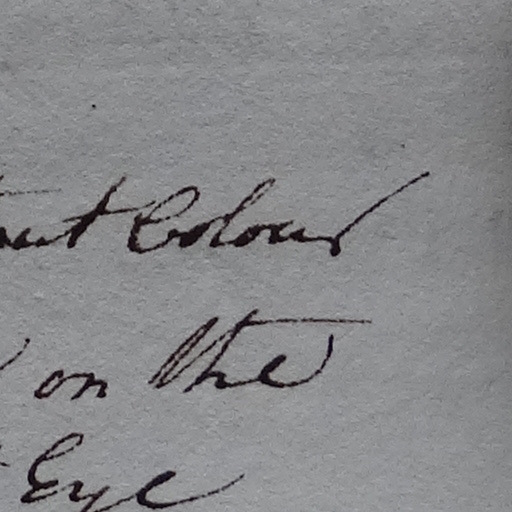 Colour
on the
Eye